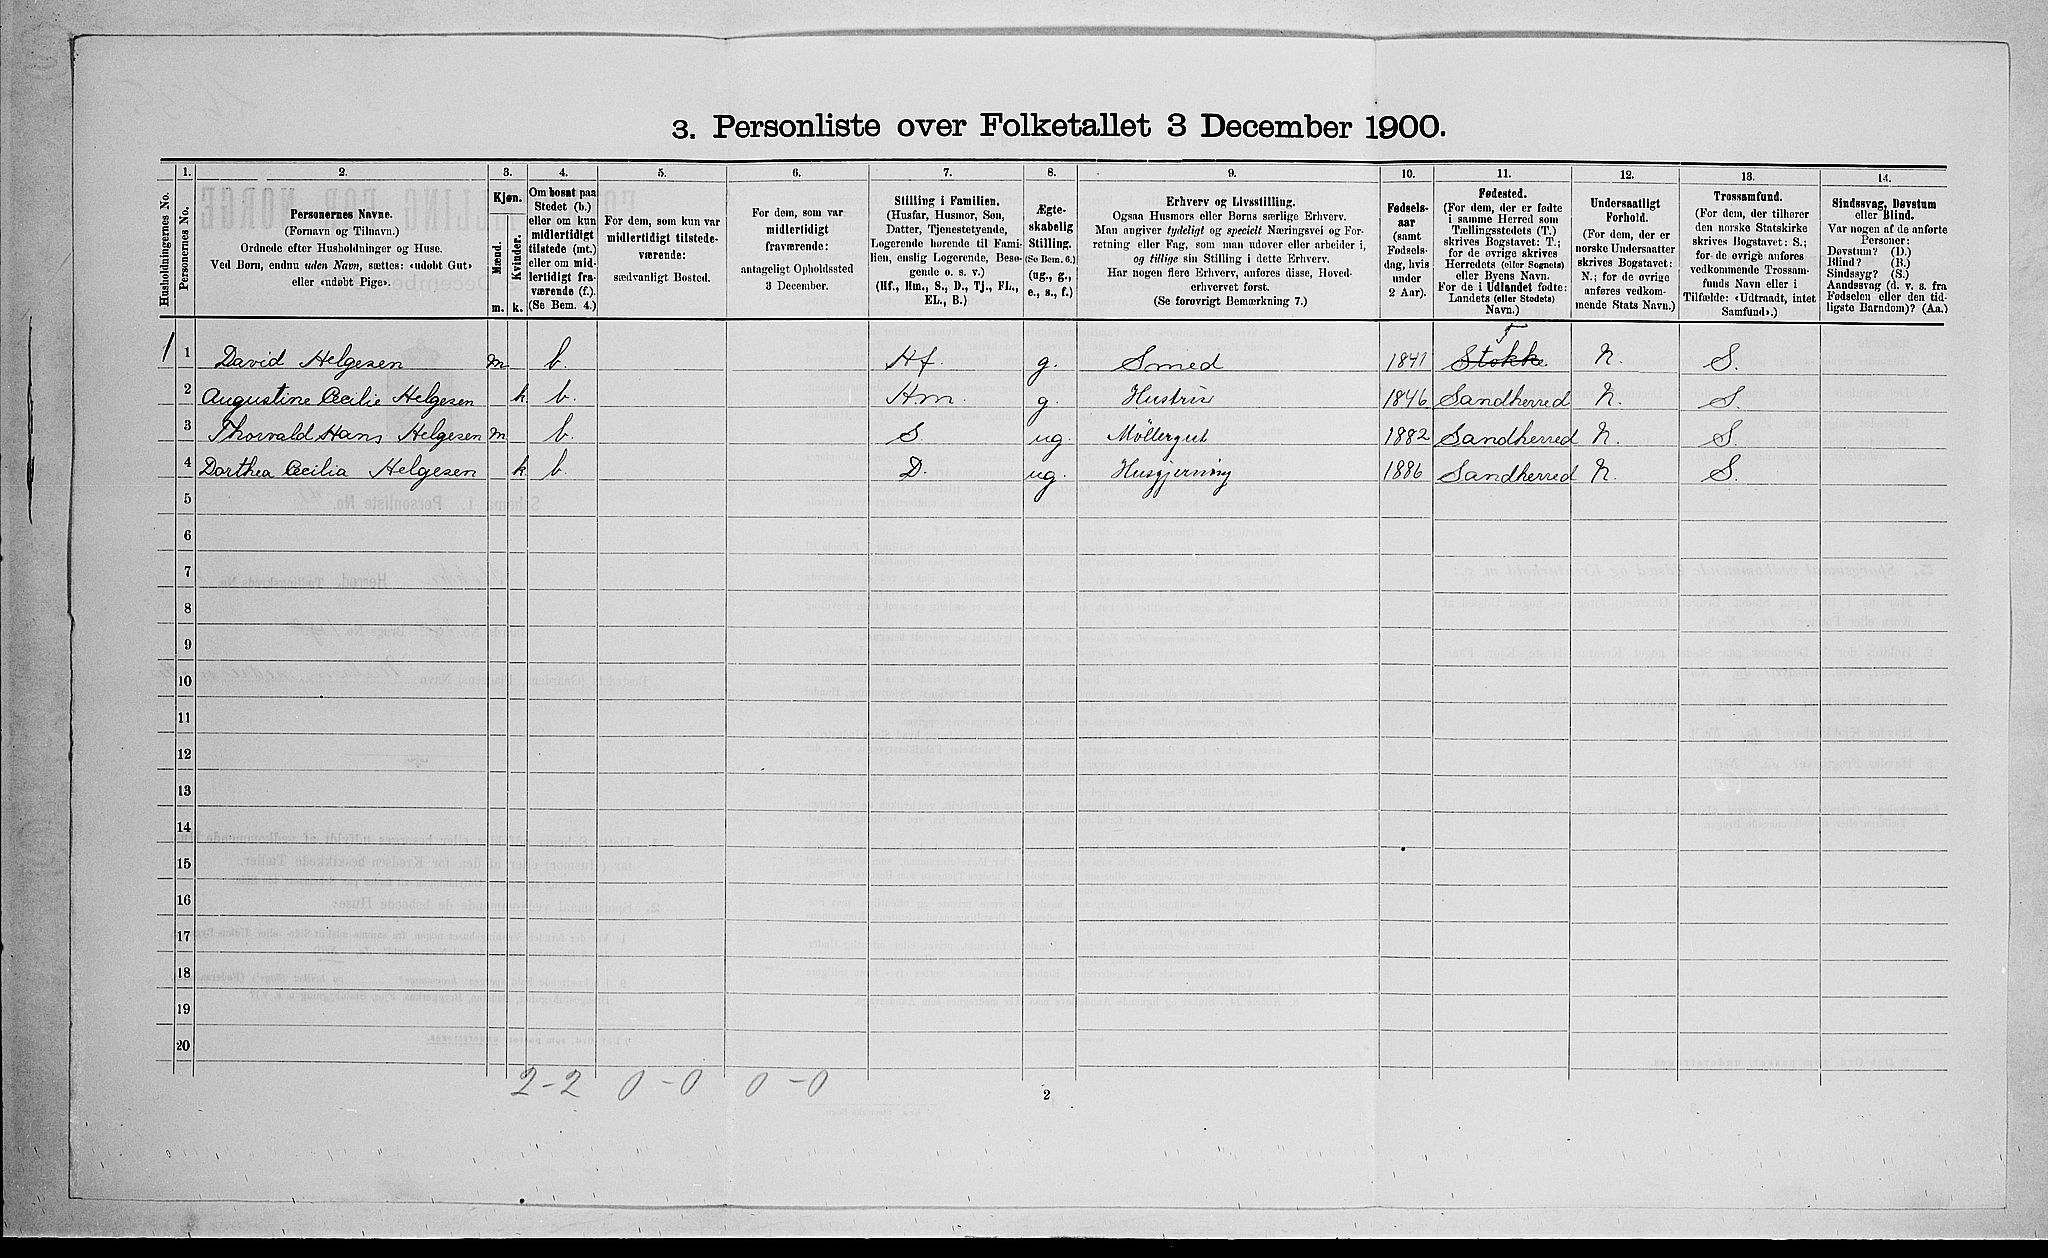 3. Personliste over Folketallet 3 December 1900.
Husholdningernes No.
1.
Personernes No.
2.
Personernes Navne.
(Fornavn og Tilnavn.)
Ordnede efter Husholdninger og Huse.
Ved Børn, endnu uden Navn, sættes: «udøbt Gut»
eller «udøbt Pige».
3.
Kjøn.
Mænd.
Kvinder.
m. k.
4.
Om bosat paa
Stedet (b.)
eller om kun
midlertidigt
tilstede (mt.)
eller om mid-
lertidigt fra-
værende (f.).
(Se Bem. 4.)
5.
For dem, som kun var
midlertidigt tilstede-
værende:
sædvanligt Bosted.
6.
For dem, som var
midlertidigt
fraværende:
antageligt Opholdssted
3 December.
7.
Stilling i Familien.
(Husfar, Husmor, Søn,
Datter, Tjenestetyende,
Logerende hørende til Fami-
lien, enslig Logerende, Besø-
gende o. s. v.)
(Hf., Hm., S., D., Tj., FL.,
EL., B.)
8.
Ægte-
skabelig
Stilling.
(Se Bem. 6.)
(ug., g.,
e., s., f.)
9.
Erhverv og Livsstilling.
Ogsaa Husmors eller Børns særlige Erhverv.
Man angiver tydeligt og specielt Næringsvei og For-
retning eller Fag, som man udover eller arbeider i,
og tillige sin Stilling i dette Erhverv.
Har nogen flere Erhverv, anføres disse, Hoved-
erhvervet først.
(Se forøvrigt Bemærkning 7.)
10.
Fødsels-
aar
(samt
Fødsels-
dag, hvis
under
2 Aar).
11.
Fødested.
(For dem, der er fødte
i samme Herred som
Tællingsstedets (T.)
skrives Bogstavet: T.;
for de øvrige skrives
Herredets (eller Sognets)
eller Byens Navn.
For de i Udlandet fødte:
Landets (eller Stedets)
Navn.)
12.
Undersaatligt
Forhold.
(For dem, der er
norske Undersaatter
skrives Bogstavet:
N.; for de øvrige
anføres vedkom-
mende Stats Navn.)
13.
Trossamfund.
(For dem, der tilhører
den norske Statskirke
skrives Bogstavet: S.;
for de øvrige anføres
vedkommende Trossam-
funds Navn eller i
Tilfælde: «Udtraadt, intet
Samfund».)
14.
Sindssvag, Døvstum
eller Blind.
Var nogen af de anførte
Personer:
Døvstum? (D.)
Blind? (B.)
Sindssyg? (S.)
Aandssvag (d. v. s. fra
Fødselen eller den tid-
ligste Barndom)? (Aa.)
T
1 1 David Helgesen m b. Hf. g. Smed 1841 Stokke N. S.
2 Augustine Cecilie Helgesen k b. Hm. g. Hustru 1846 Sandherred N. S.
3 Thorvald Hans Helgesen m b. S ug. Möllergut 1882 Sandherred N. S.
4 Dorthea Cecilia Helgesen k b. D. ug. Husgjerning 1886 Sandherred N. S.
5
6
7
8
9
10
11
12
13
14
15
16
17
18
19
20
2-2 0-0 0-0
2